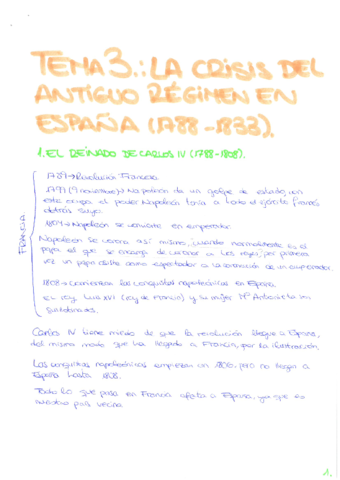 TEMA 3.: LA CRISIS DEL
ANTIGUO RÉGIMEN EN
ESPAÑA (1788-1833).
1. EL REINADO DE CARLOS IV (1788-1808).
FRANCIA
1789→Revolución Francesa
1799 (9 noviembre)→Napoleón da un golpe de estado, con
este ocupa el poder Napoleón tenía a todo el ejército francés
detrás suyo.
1804→Napoleón se convierte en emperador.
Napoleón se corona así mismo, cuando normalmente es el
papa el que se encarga de coronar a los reyes, por primera
vez un papa asiste como espectador a la coronación de un emperador.
1808→Comienzan las conquistas napoleónicas en España.
El rey, Luis XVI (rey de Francia) y su mujer Mª Antonieta son
guillotinados.
Carlos IV tiene miedo de que la revolución llegue a España,
del mismo modo que ha llegado a Francia, por la ilustración.
Las conquistas napoleónicas empiezan en 1806, pero no llegan a
España hasta 1808.
Todo lo que pasa en Francia afecta a España, ya que es
nuestro país vecino.
1.